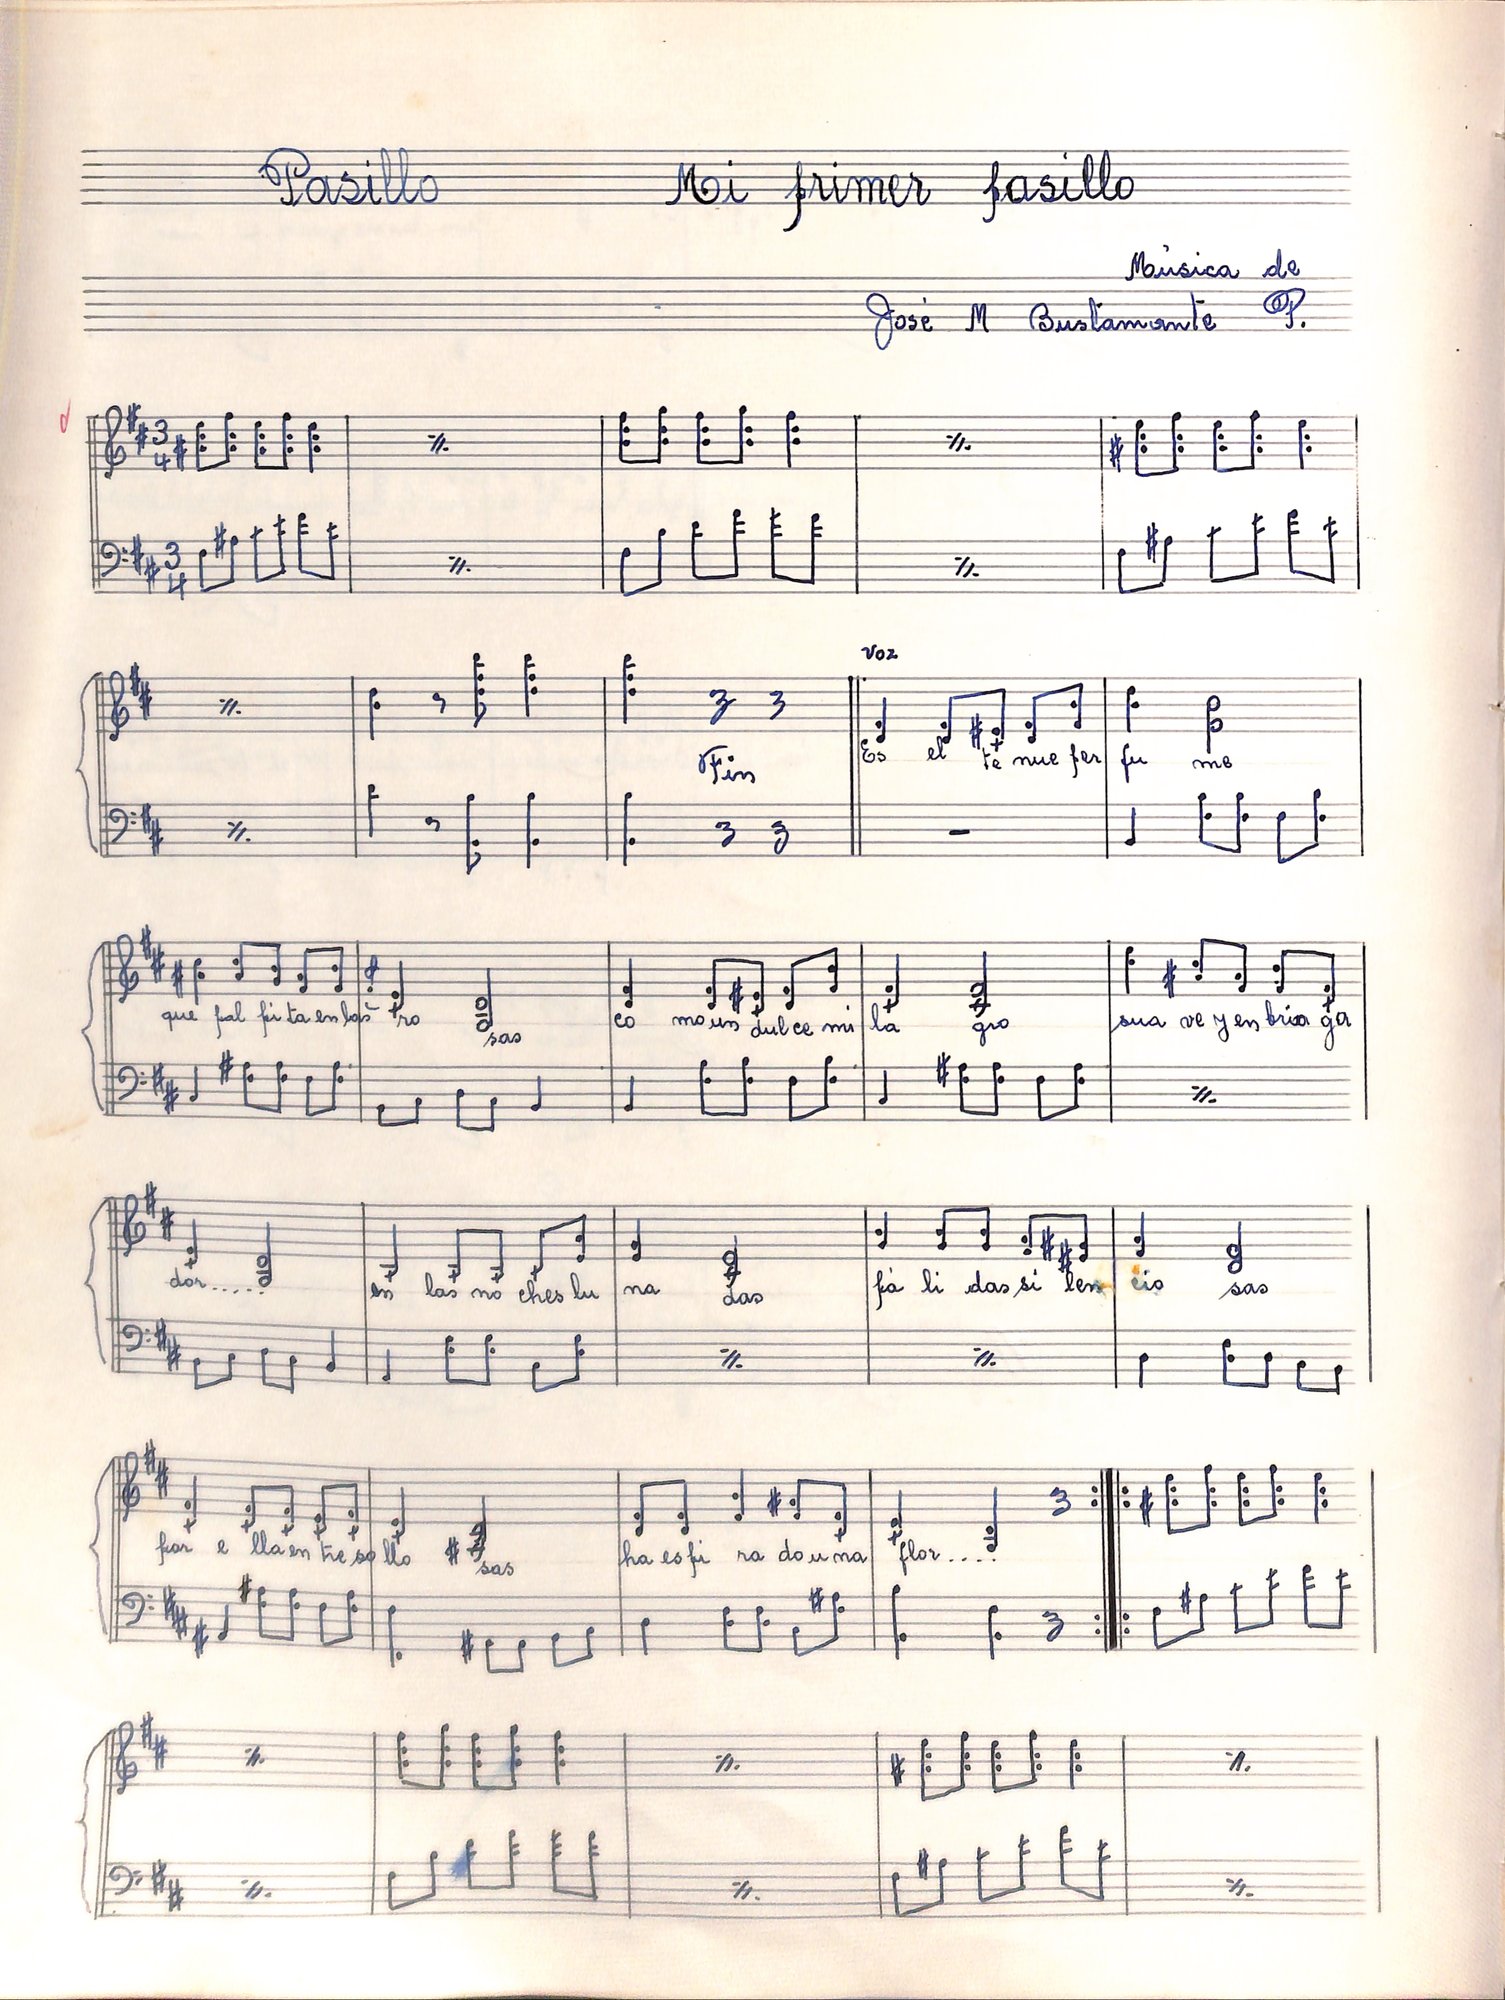 Pasillo Mi primer pasillo
Música de
José M Bustamante P.
3 4
3 4
Voz
Fin
Es el te nue per fu me
que pal pi ta en las ro sas co mo un dul ce mi la gro sua ve y en bria ga
dor..... en las no ches lu na das pá li das si len cio sas
por e lla en tre so llo sas ha es pi ra do u na flor....